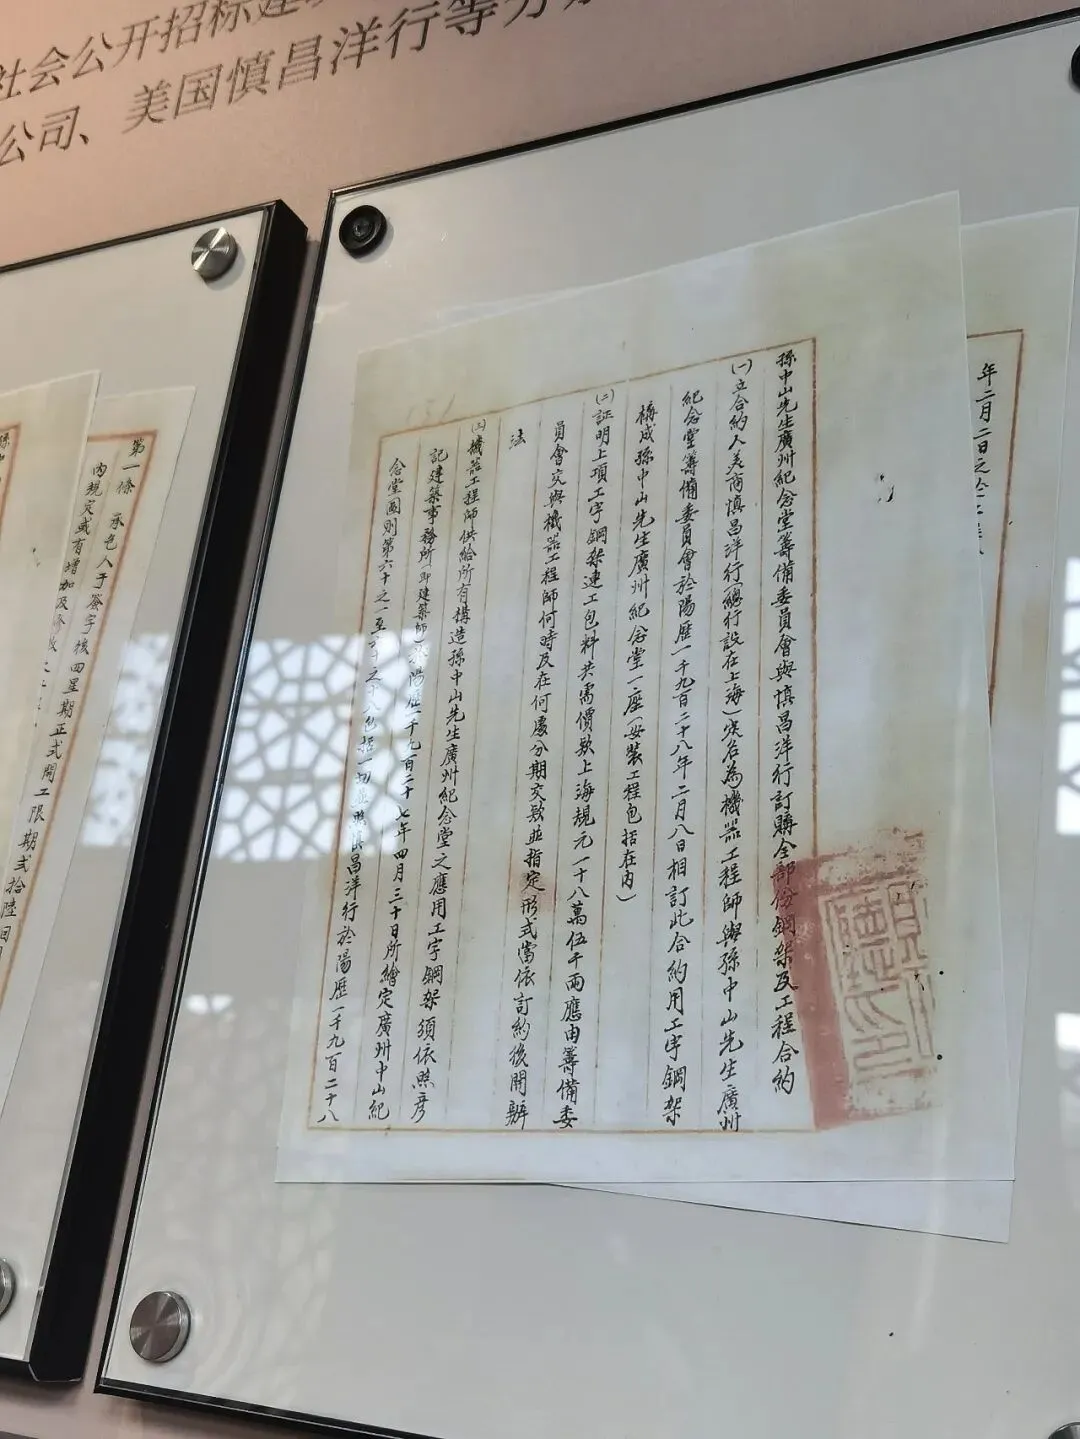 社会公开招标建
公司、美国慎昌洋行等分
孫中山先生廣州紀念堂籌備委員會與慎昌洋行訂購全部份鋼架及工程合約
(一)立合約人美商慎昌洋行(總行設在上海)定名為機器工程師與孫中山先生廣州
紀念堂籌備委員會於陽歷一千九百二十八年二月八日相訂此合約用工字鋼架
構成孫中山先生廣州紀念堂一座(安裝工程包括在內)
(二)証明上項工字鋼架連工包料共需價欵上海規元一十八萬伍千兩應由籌備委
員會交與機器工程師何時及在何處分期交欵並指定形式當依訂約後開辦
法
(三)機器工程師供給所有構造孫中山先生廣州紀念堂之應用工字鋼架須依照彥
記建築事務所(即建築師)陽歷一千九百二十七年四月三十日所繪定廣州中山紀
念堂圖則第六十之一至六十之十八包括一切並照慎昌洋行於陽歷一千九百二十八
年二月二日之
第一條 承包人于簽字後四星期正式開工限期弍拾陸
內規定或有增加及修改